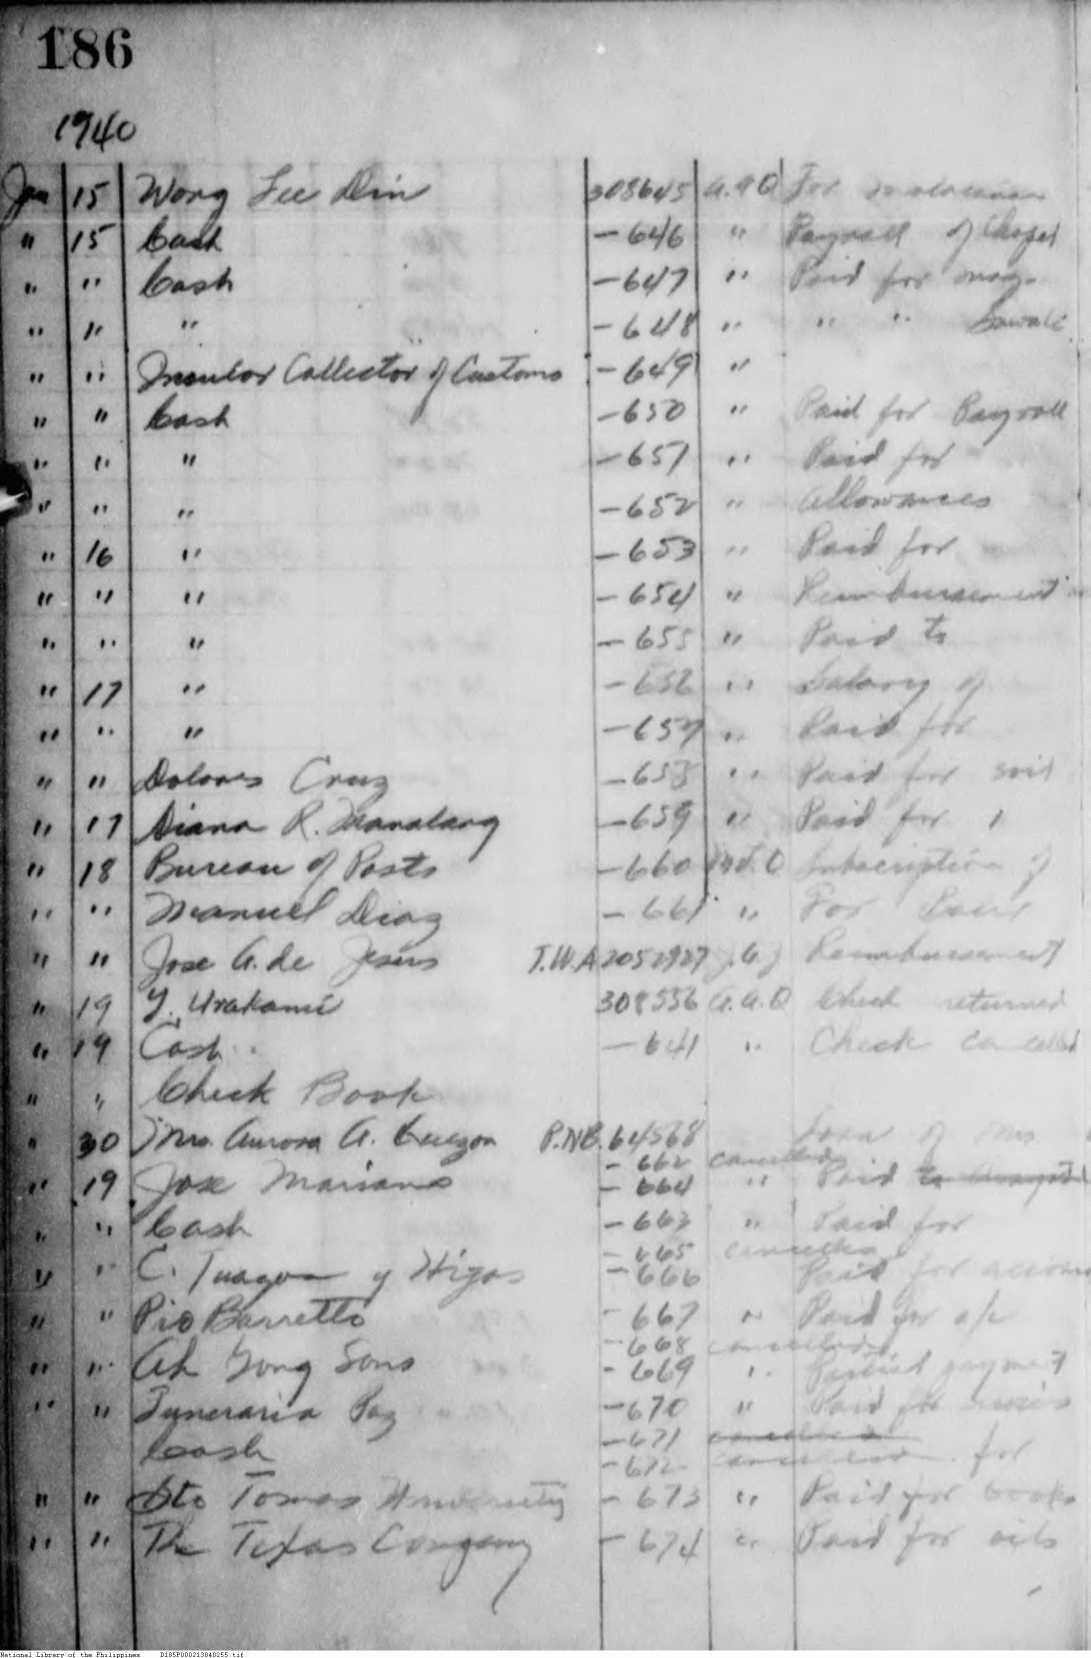 186
1940
Jan 15 Wong Lee Din 308645 A.A.Q For
" 15 Cash - 646 " Payroll of Chapel
" " Cash - 647 " Paid for
" " " - 648 " " " Sawali
" " Insular Collector of Customs - 649 "
" " Cash - 650 " Paid for Payroll
" " " - 651 " Paid for
" " " - 652 " Allowances
" 16 " - 653 " Paid for
" " " - 654 " Reimbursement
" " " - 655 " Paid to
" 17 " - 656 " Salary of
" " " - 657 " Paid for
" " Dolores Cruz - 658 " Paid for soil
" 17 Diana R. Manalang - 659 " Paid for
" 18 Bureau of Posts - 660 Subscription of
" " Manuel Diaz - 661 " For
" " Jose A. de Jesus T.W.A 2052927 Reimbursement
" 19 Y. Urakami 308556 A.A.Q Check returned
" 19 Cash - 641 " Check cancelled
" " Check Book
" 30 Mrs. Aurora A. Quezon P.N.B. 64568 of Mrs
- 662 cancelled
" 19 Jose Mariano - 664 " Paid to
" " Cash - 663 " Paid for
- 665 cancelled
" " C. Tuazon y Hijos - 666 Paid for
" " Pio Barretto - 667 " Paid for a/c
- 668 cancelled
" " Ah Gong Sons - 669 " Partial payment
" " Funeraria Paz - 670 " Paid for
- 671 cancelled
Cash - 672 cancelled for
" " Sto Tomas University - 673 " Paid for books
" " The Texas Company - 674 " Paid for oils
National Library of the Philippines D185P000213040255.tif